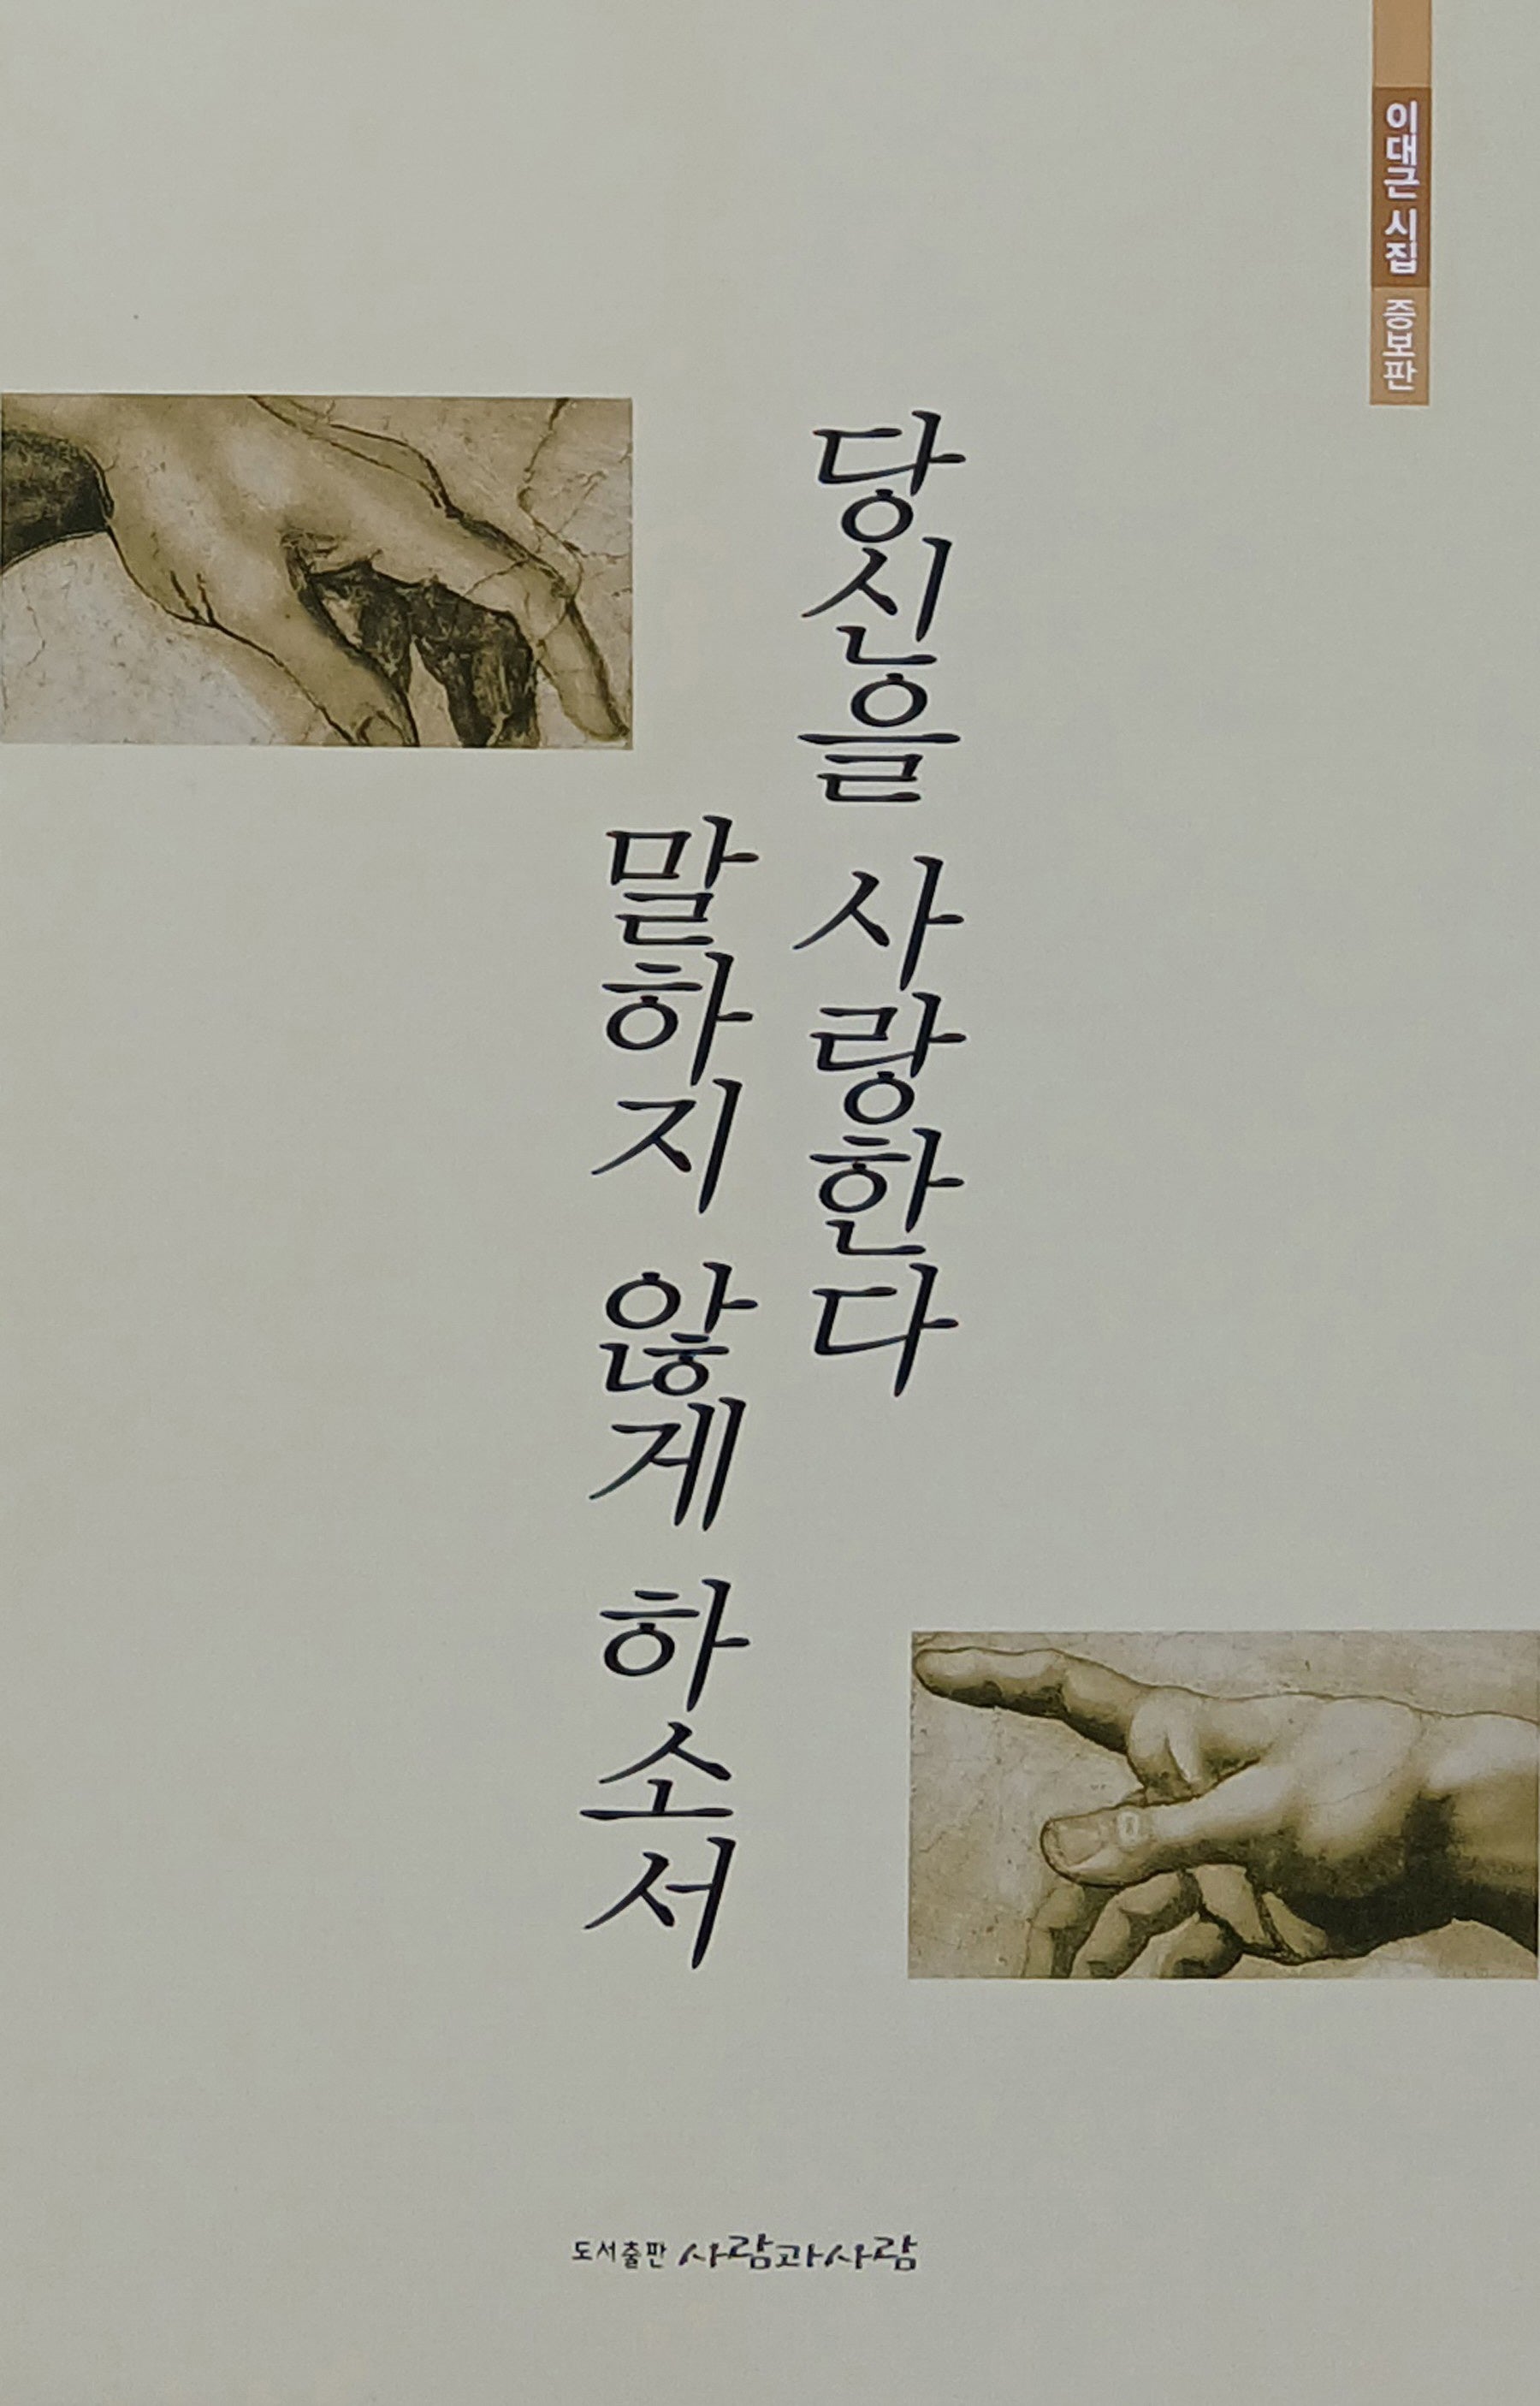 이대근 시집 증보판
당신을 사랑한다
말하지 않게 하소서
도서출판 사람과사람